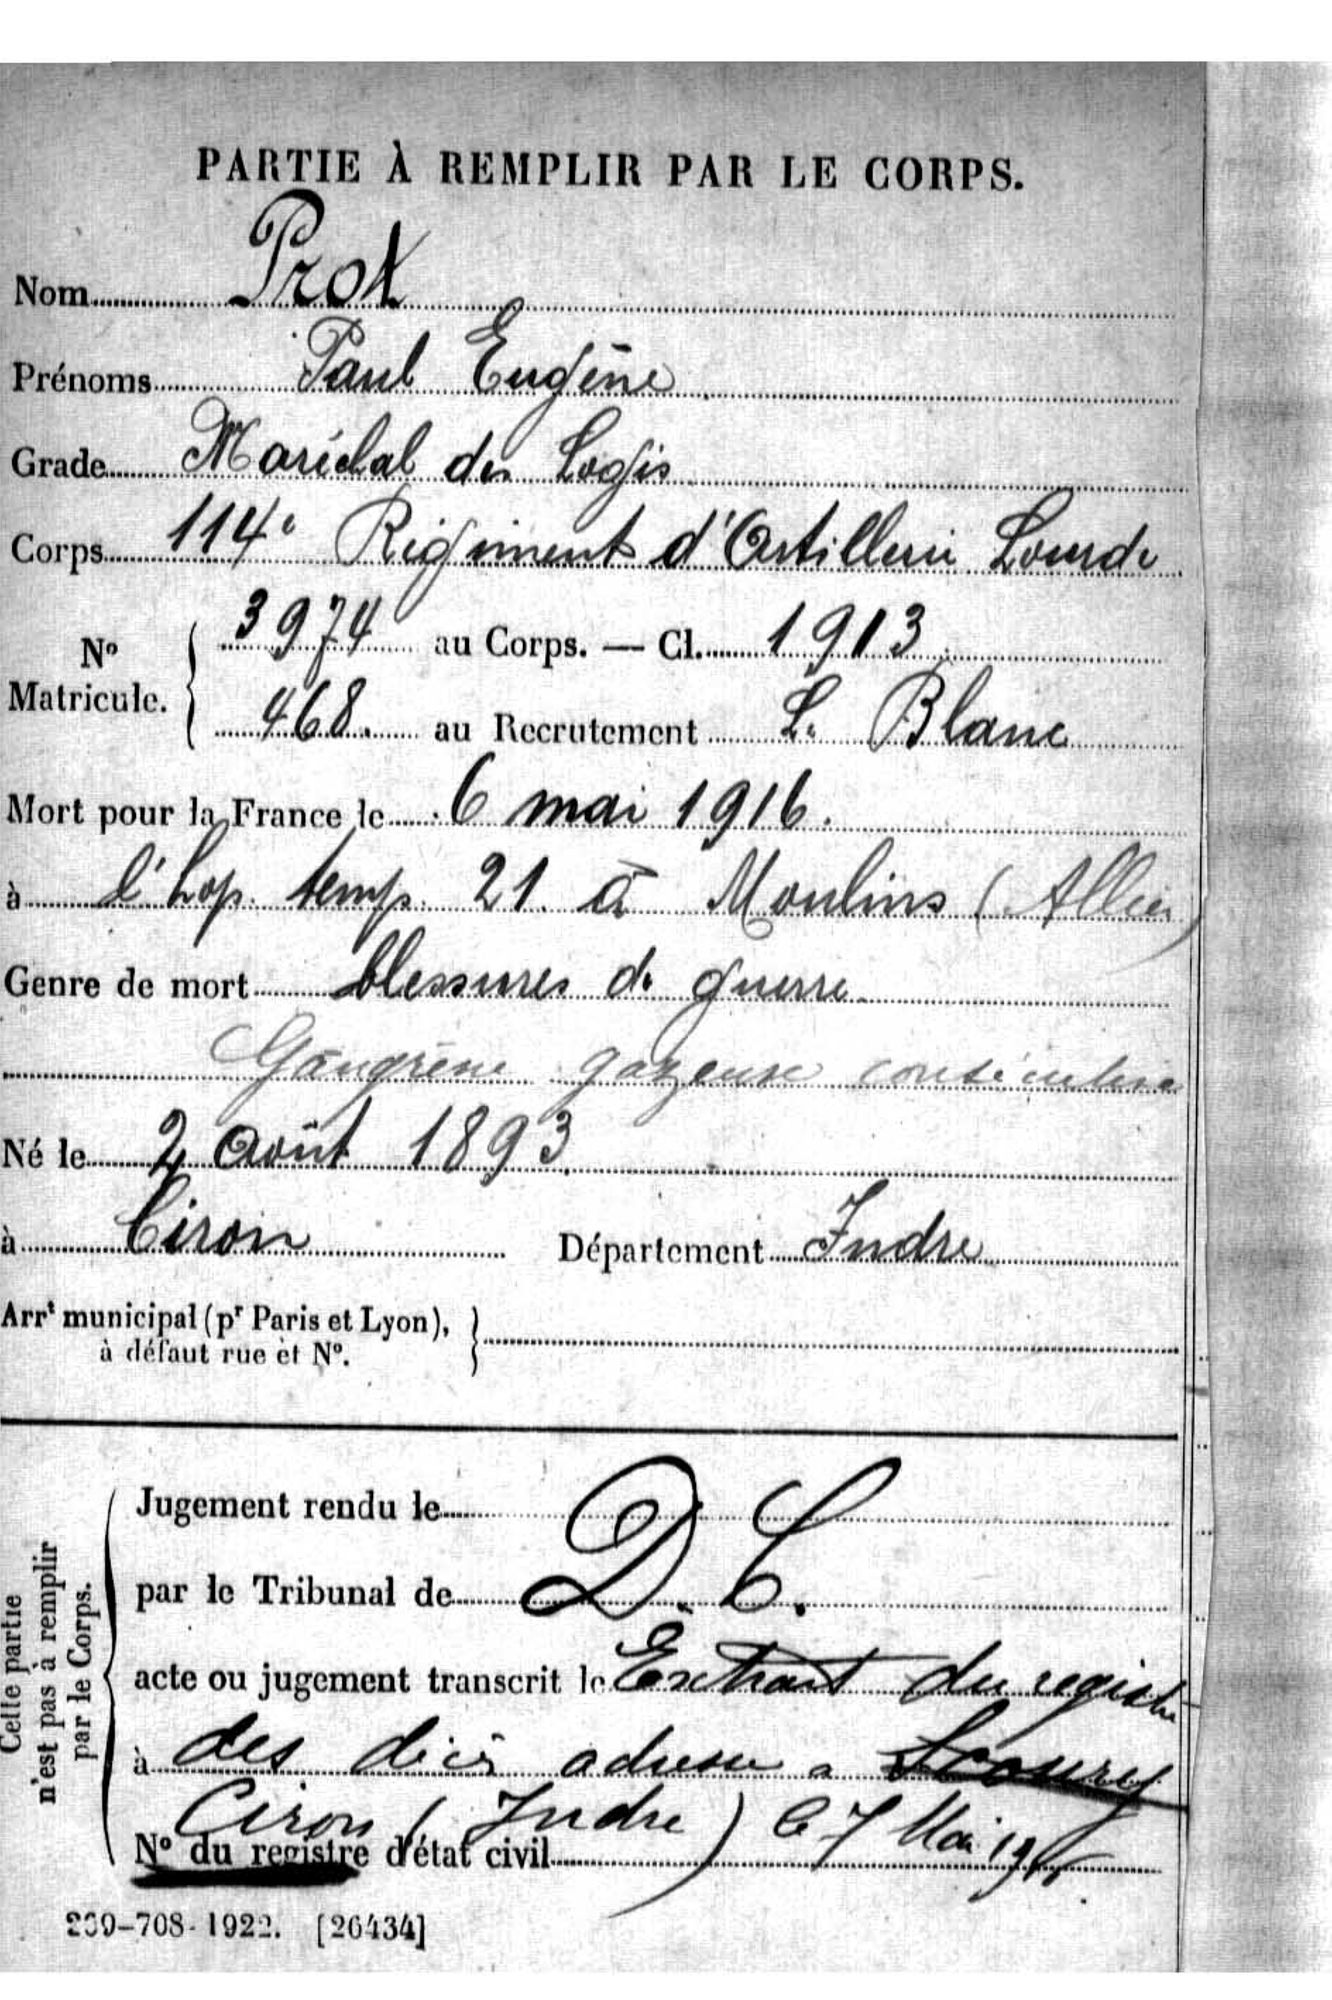 PARTIE À REMPLIR PAR LE CORPS.
Nom Prot
Prénoms Paul Eugène
Grade Maréchal des Logis
Corps 114e Régiment d'Artillerie Lourde
No Matricule. { 3974 au Corps. — Cl. 1913
468. au Recrutement Le Blanc
Mort pour la France le 6 mai 1916.
à l'hop. temp. 21 à Moulins (Allier)
Genre de mort blessures de guerre
Gangrène gazeuse consécutive
Né le 2 août 1893
à Ciron Département Indre
Arrt municipal (pr Paris et Lyon),
à défaut rue et No.
Celle partie
n'est pas à remplir
par le Corps.
Jugement rendu le
par le Tribunal de D. C.
acte ou jugement transcrit le Extrait du registre
à des décès adressé a
Ciron (Indre) le 7 Mai 1916
No du registre d'état civil
239-708-1922. [26434]